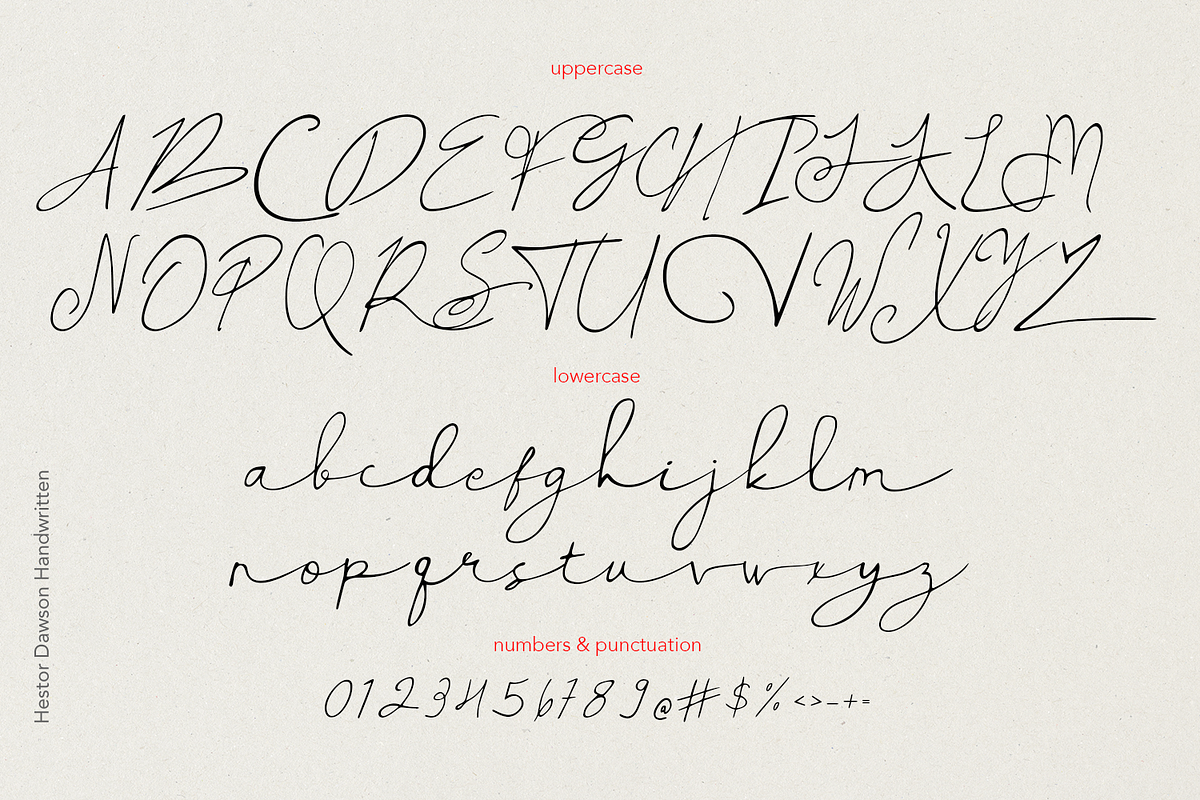 uppercase
ABCDEFGHIJKLM
NOPQRSTUVWXYZ
lowercase
abcdefghijklm
nopqrstuvwxyz
numbers & punctuation
0123456789@#$%<>-+=
Hestor Dawson Handwritten